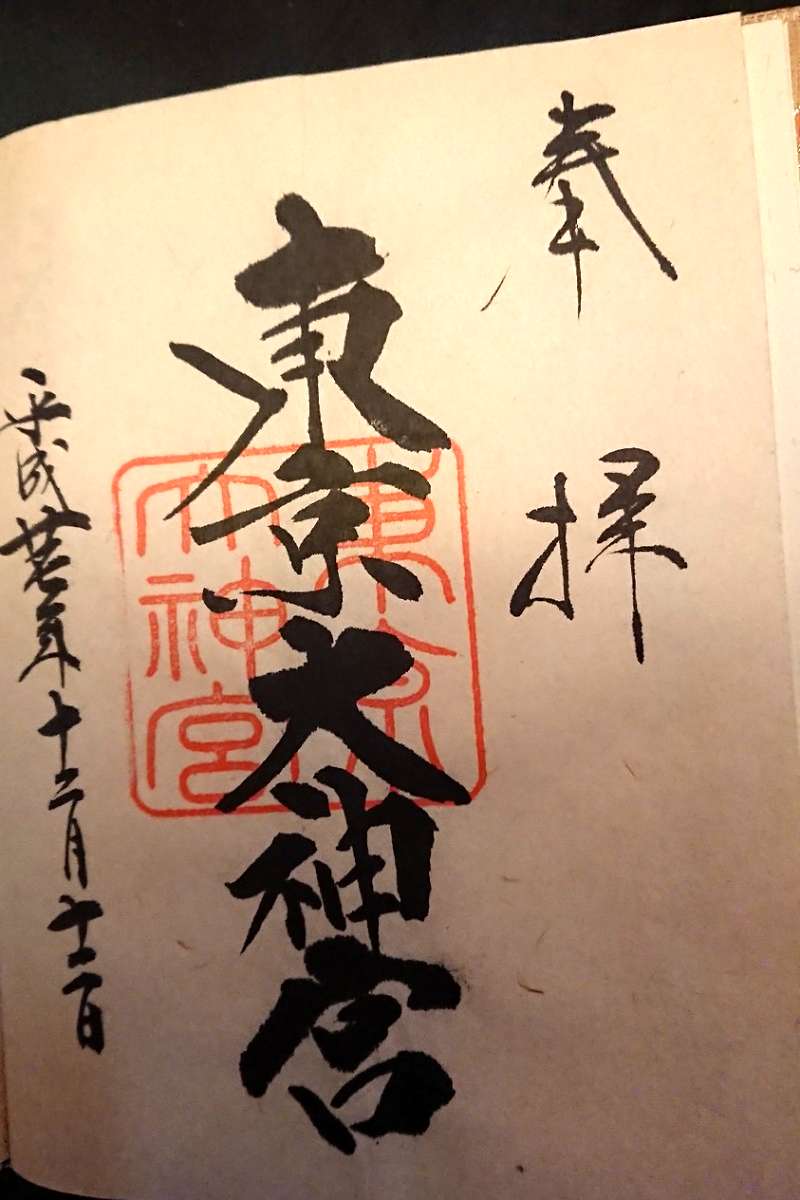 奉拝
東京大神宮
東京大神宮
平成廿七年十二月十二日